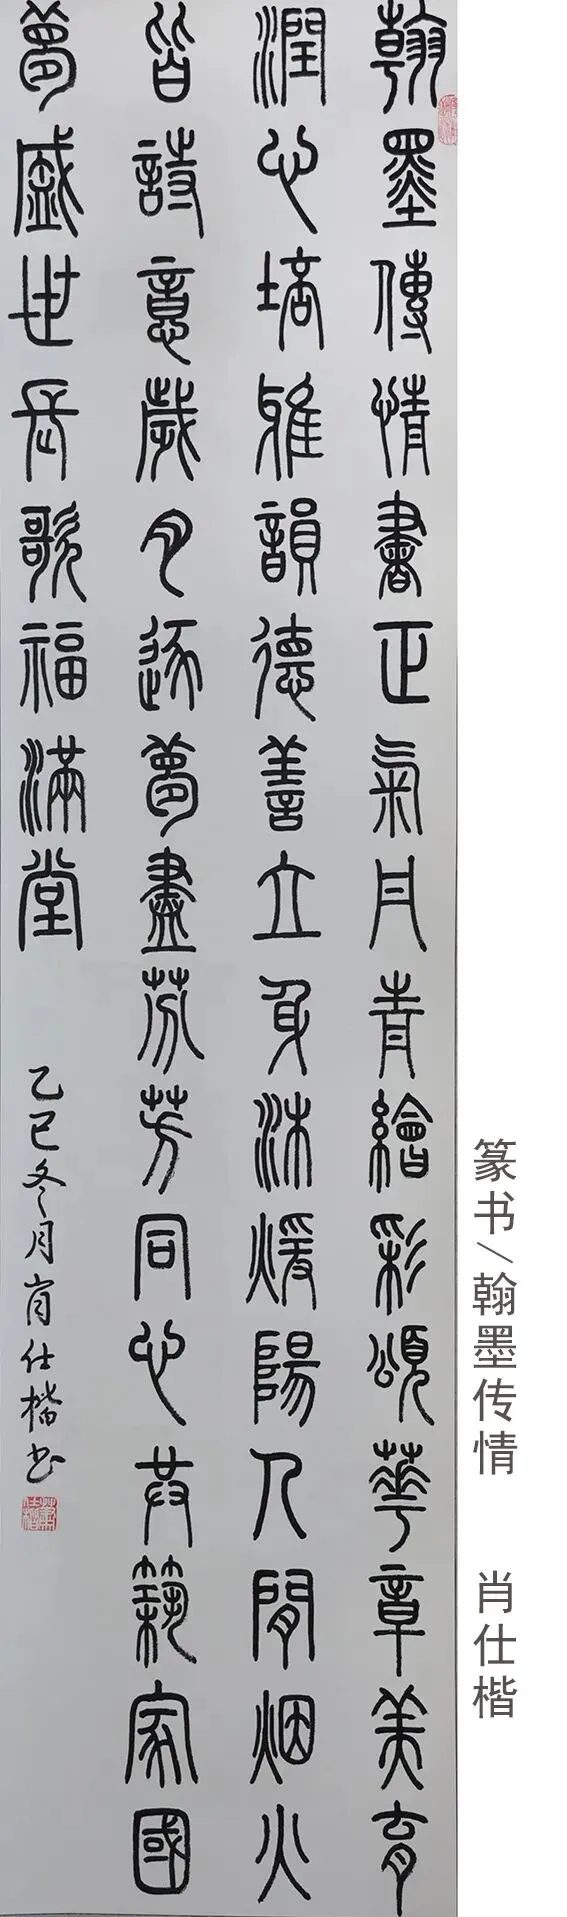 翰墨傳情書正氣丹青繪彩頌華章美育
潤心培雅韻德善立身沐煖陽人間烟火
皆詩意歲月逐夢盡芬芳同心共築家國
夢盛世長歌福滿堂
乙巳冬月肖仕楷书
篆书/翰墨传情 肖仕楷